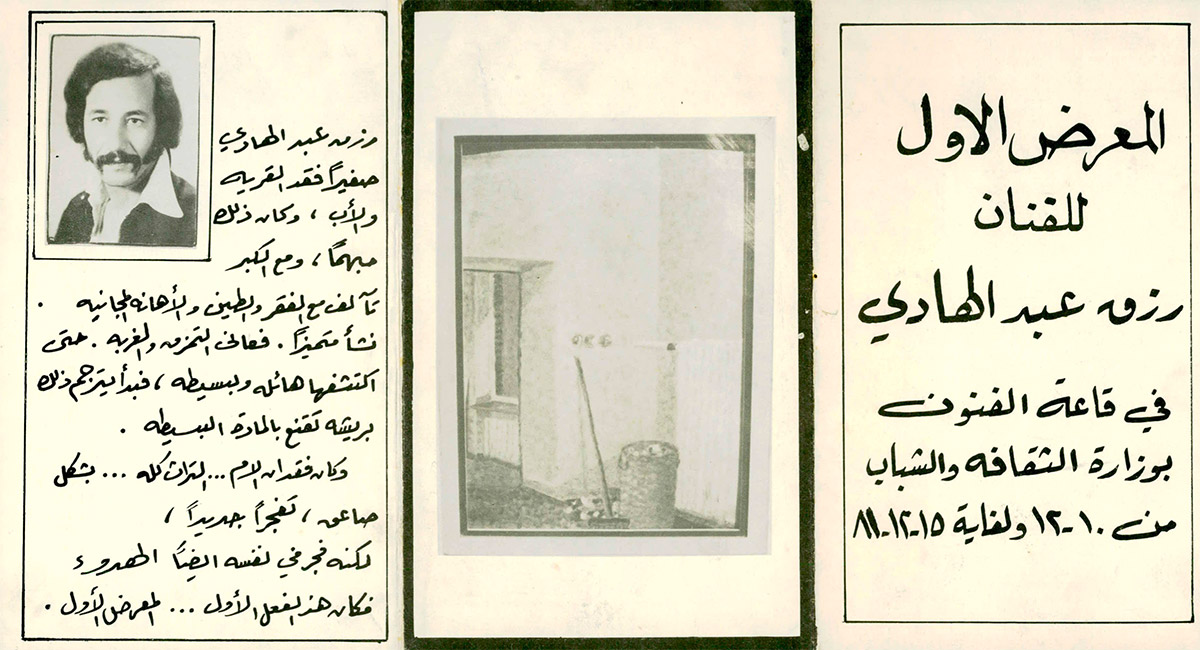 المعرض الاول
للفنان
رزق عبد الهادي
في قاعة الفنون
بوزارة الثقافه والشباب
من ١٠-١٢ ولغاية ١٥-١٢-٨١
رزق عبد الهادي
صغيراً فقد القريه
والأب ، وكان ذلك
مبهماً ، ومع الكبر
تآلف مع الفقر والطين والأهانه المجانيه .
نشأ متميزاً . فعانى التمزق والغربه . حتى
اكتشفها هائله وبسيطه ، فبدأ يترجم ذلك
بريشه تقنع بالمادة البسيطه .
وكان فقدان الام ... التراث كله ... بشكل
صاعق ، تفجراً جديداً ،
لكنه فجر في نفسه ايضاً الهدوء
فكان هذا الفعل الأول ... المعرض الأول .